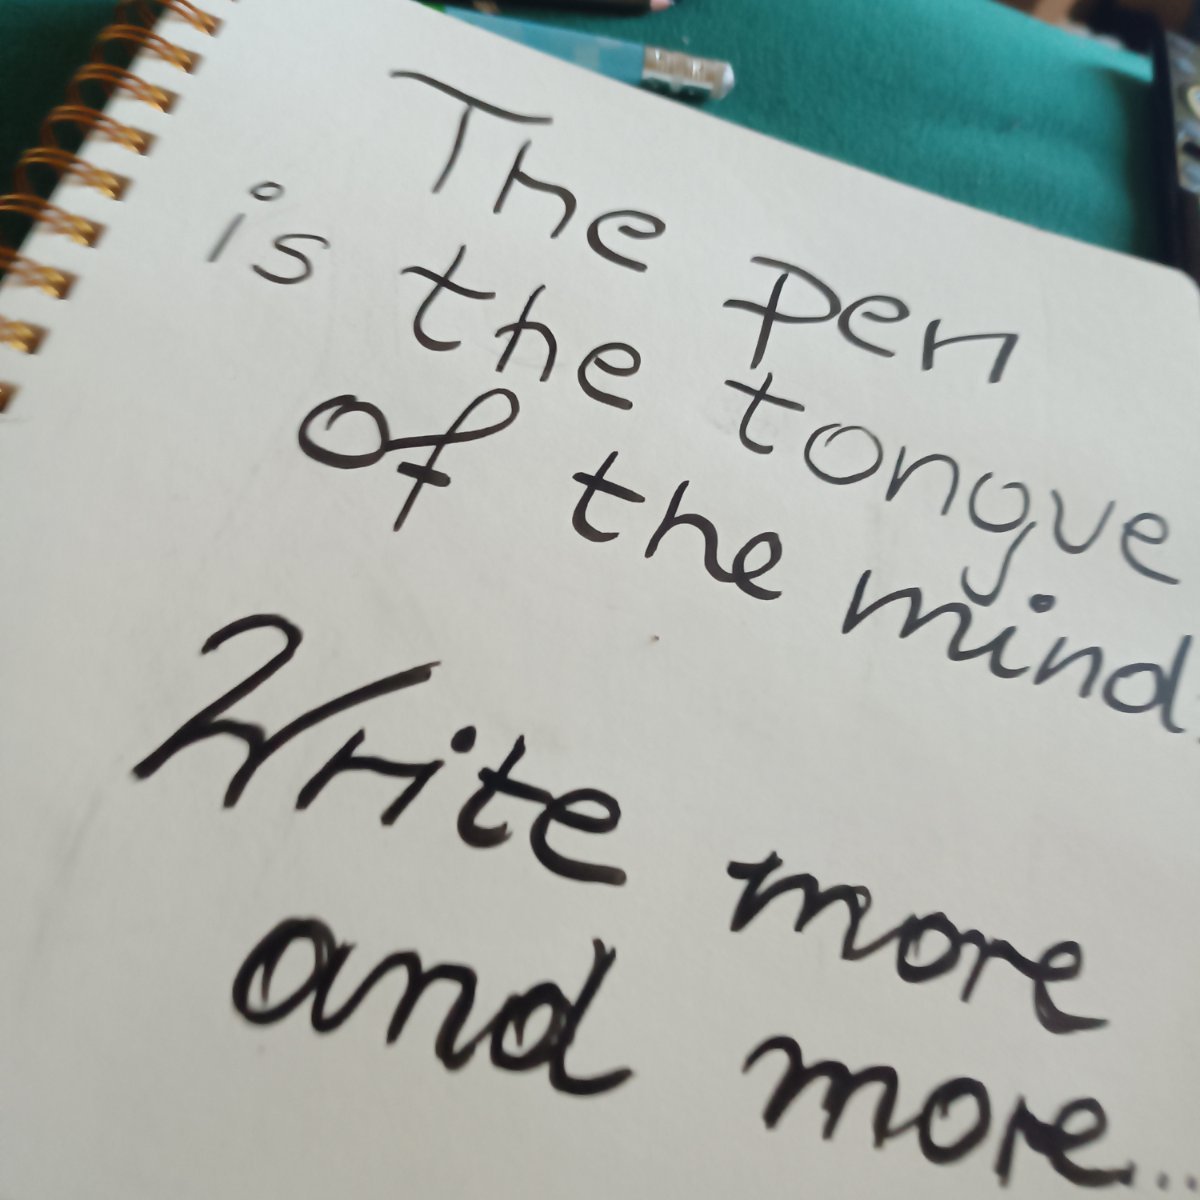 The pen
is the tongue
of the mind.
Write more
and more...